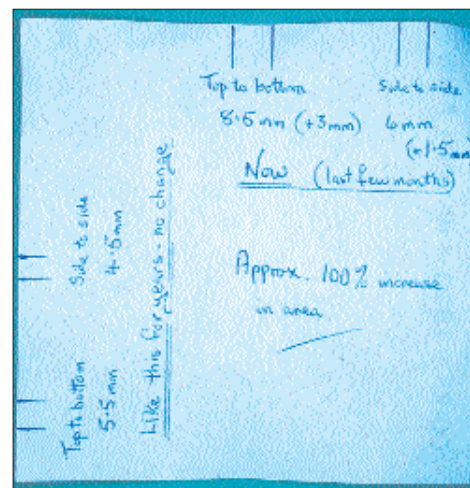 Top to bottom
8.5 mm (+3mm)
Side to side
6mm
(+1.5mm)
Now (last few months)
Approx. 100% increase
in area
Side to side
4.5mm
Top to bottom
5.5mm
Like this for years - no change